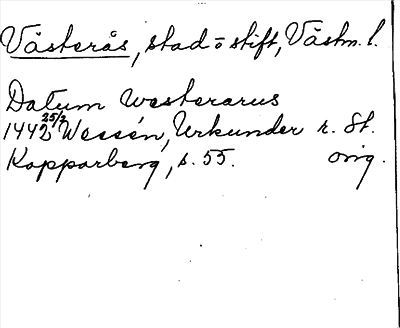 Västerås, stad o stift, Västm. l.
Datum Westerarus
1442 25/2 Wessén, Urkunder r. St.
Kopparberg, s. 55. orig.